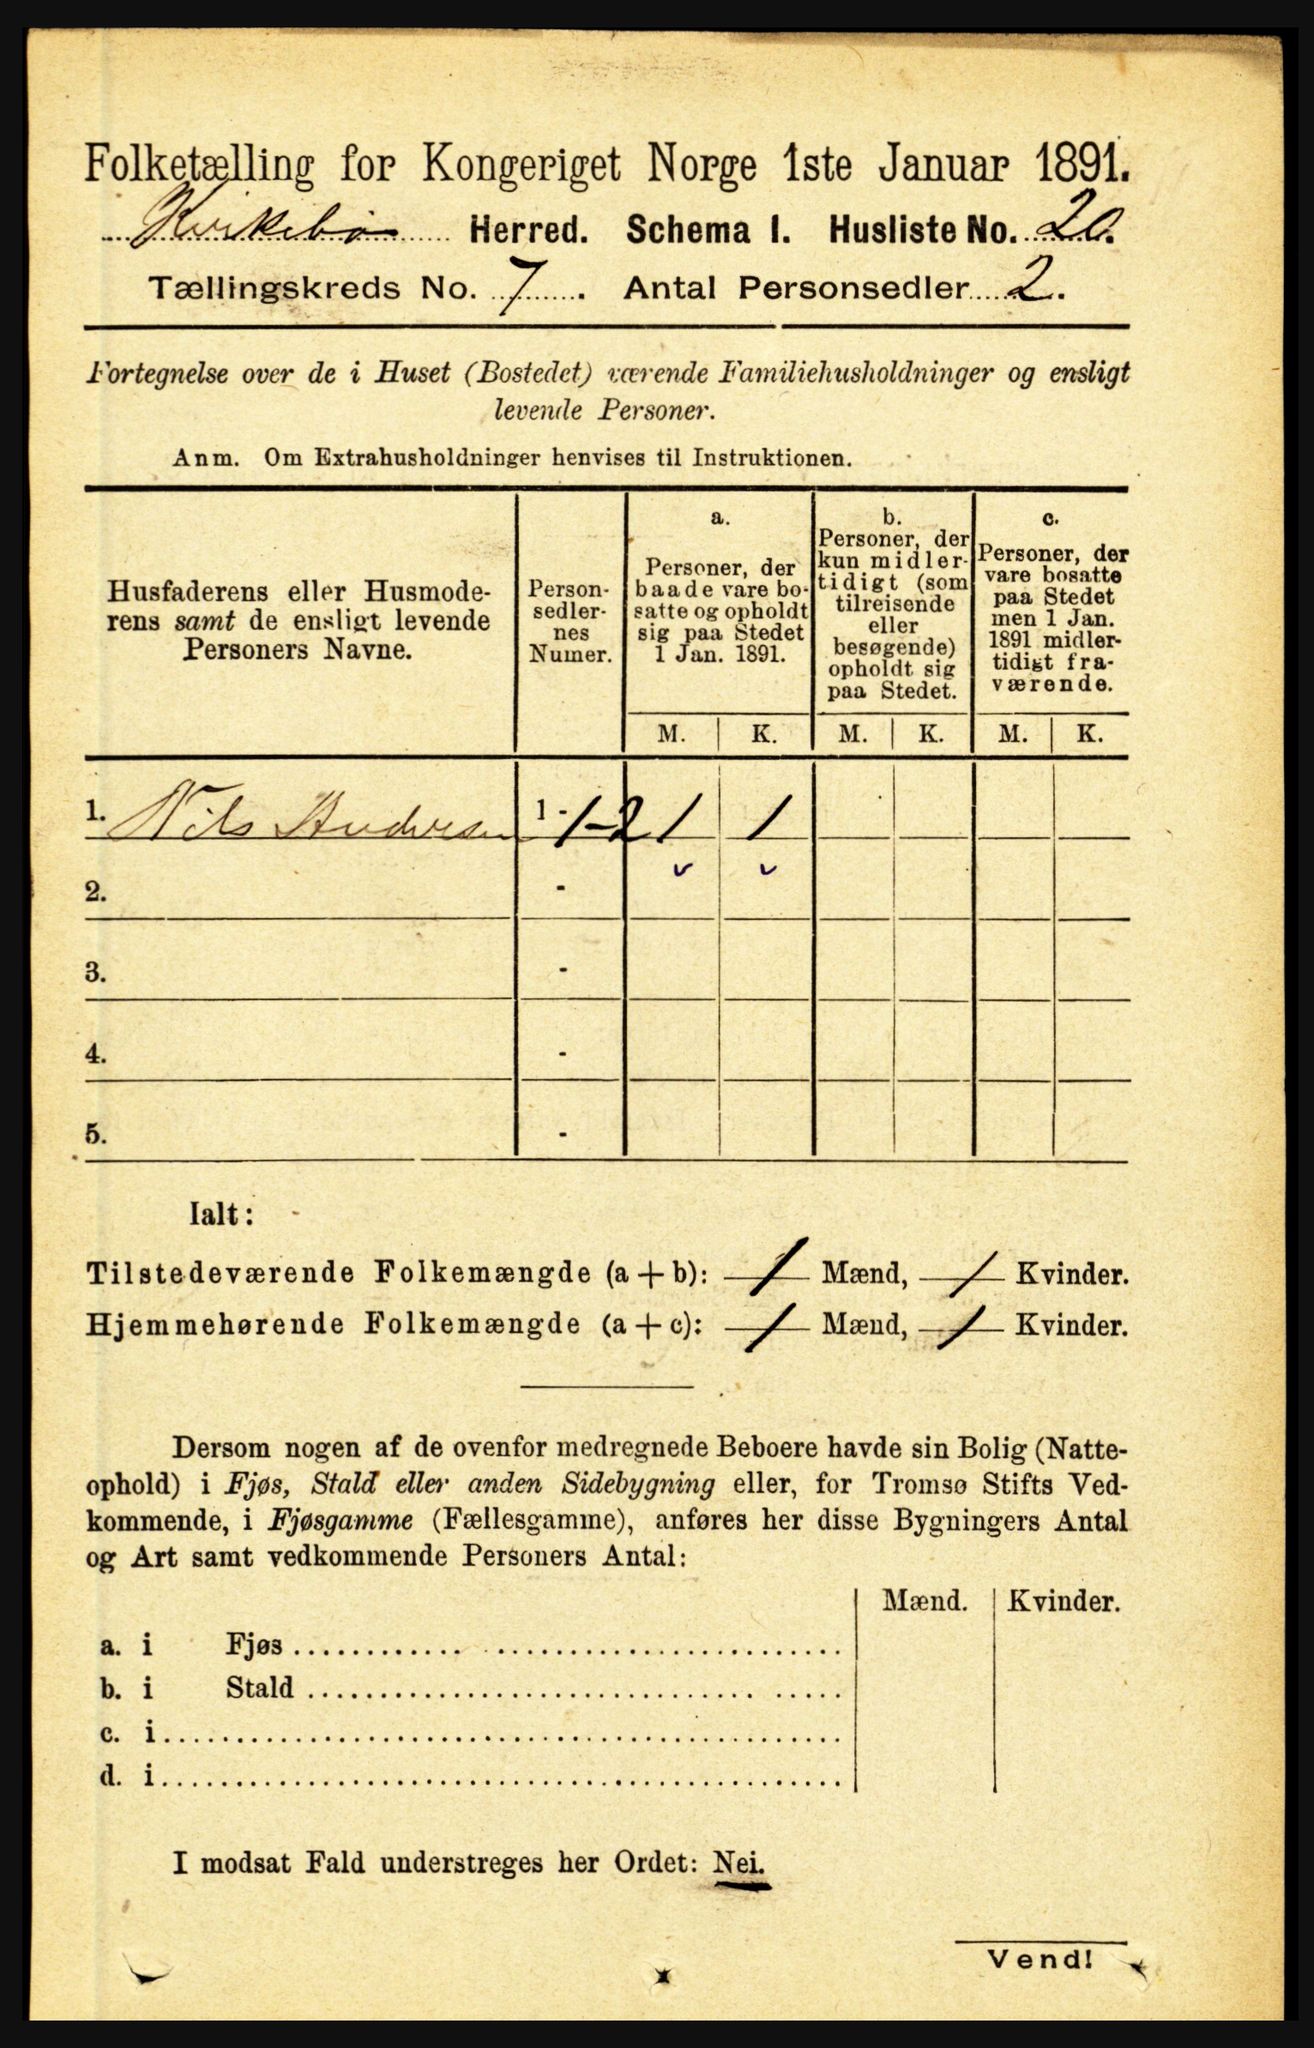 Folketælling for Kongeriget Norge 1ste Januar 1891.
Kirkebø Herred. Schema I. Husliste No. 20.
Tællingskreds No. 7. Antal Personsedler 2.
Fortegnelse over de i Huset (Bostedet) værende Familiehusholdninger og ensligt
levende Personer.
Anm. Om Extrahusholdninger henvises til Instruktionen.
Husfaderens eller Husmode-
rens samt de ensligt levende
Personers Navne.
Person-
sedler-
nes
Numer.
a.
Personer, der
baade vare bo-
satte og opholdt
sig paa Stedet
1 Jan. 1891.
b.
Personer, der
kun midler-
tidigt (som
tilreisende
eller
besøgende)
opholdt sig
paa Stedet.
c.
Personer, der
vare bosatte
paa Stedet
men 1 Jan.
1891 midler-
tidigt fra-
værende.
M. K. M. K. M. K.
1. Nils Andersen 1 - 1-2 1 1
2. -
3. -
4. -
5. -
Ialt:
Tilstedeværende Folkemængde (a + b): 1 Mænd, 1 Kvinder.
Hjemmehørende Folkemængde (a + c): 1 Mænd, 1 Kvinder.
Dersom nogen af de ovenfor medregnede Beboere havde sin Bolig (Natte-
ophold) i Fjøs, Stald eller anden Sidebygning eller, for Tromsø Stifts Ved-
kommende, i Fjøsgamme (Fællesgamme), anføres her disse Bygningers Antal
og Art samt vedkommende Personers Antal:
Mænd. Kvinder.
a. i Fjøs
b. i Stald
c. i
d. i
I modsat Fald understreges her Ordet: Nei.
Vend!